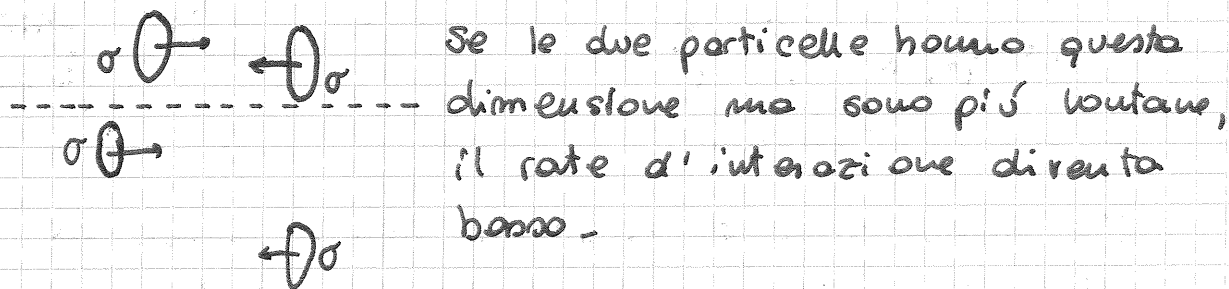 σ σ se le due particelle hanno questa
dimensione ma sono piú lontane,
σ il rate d'interazione diventa
basso -
σ